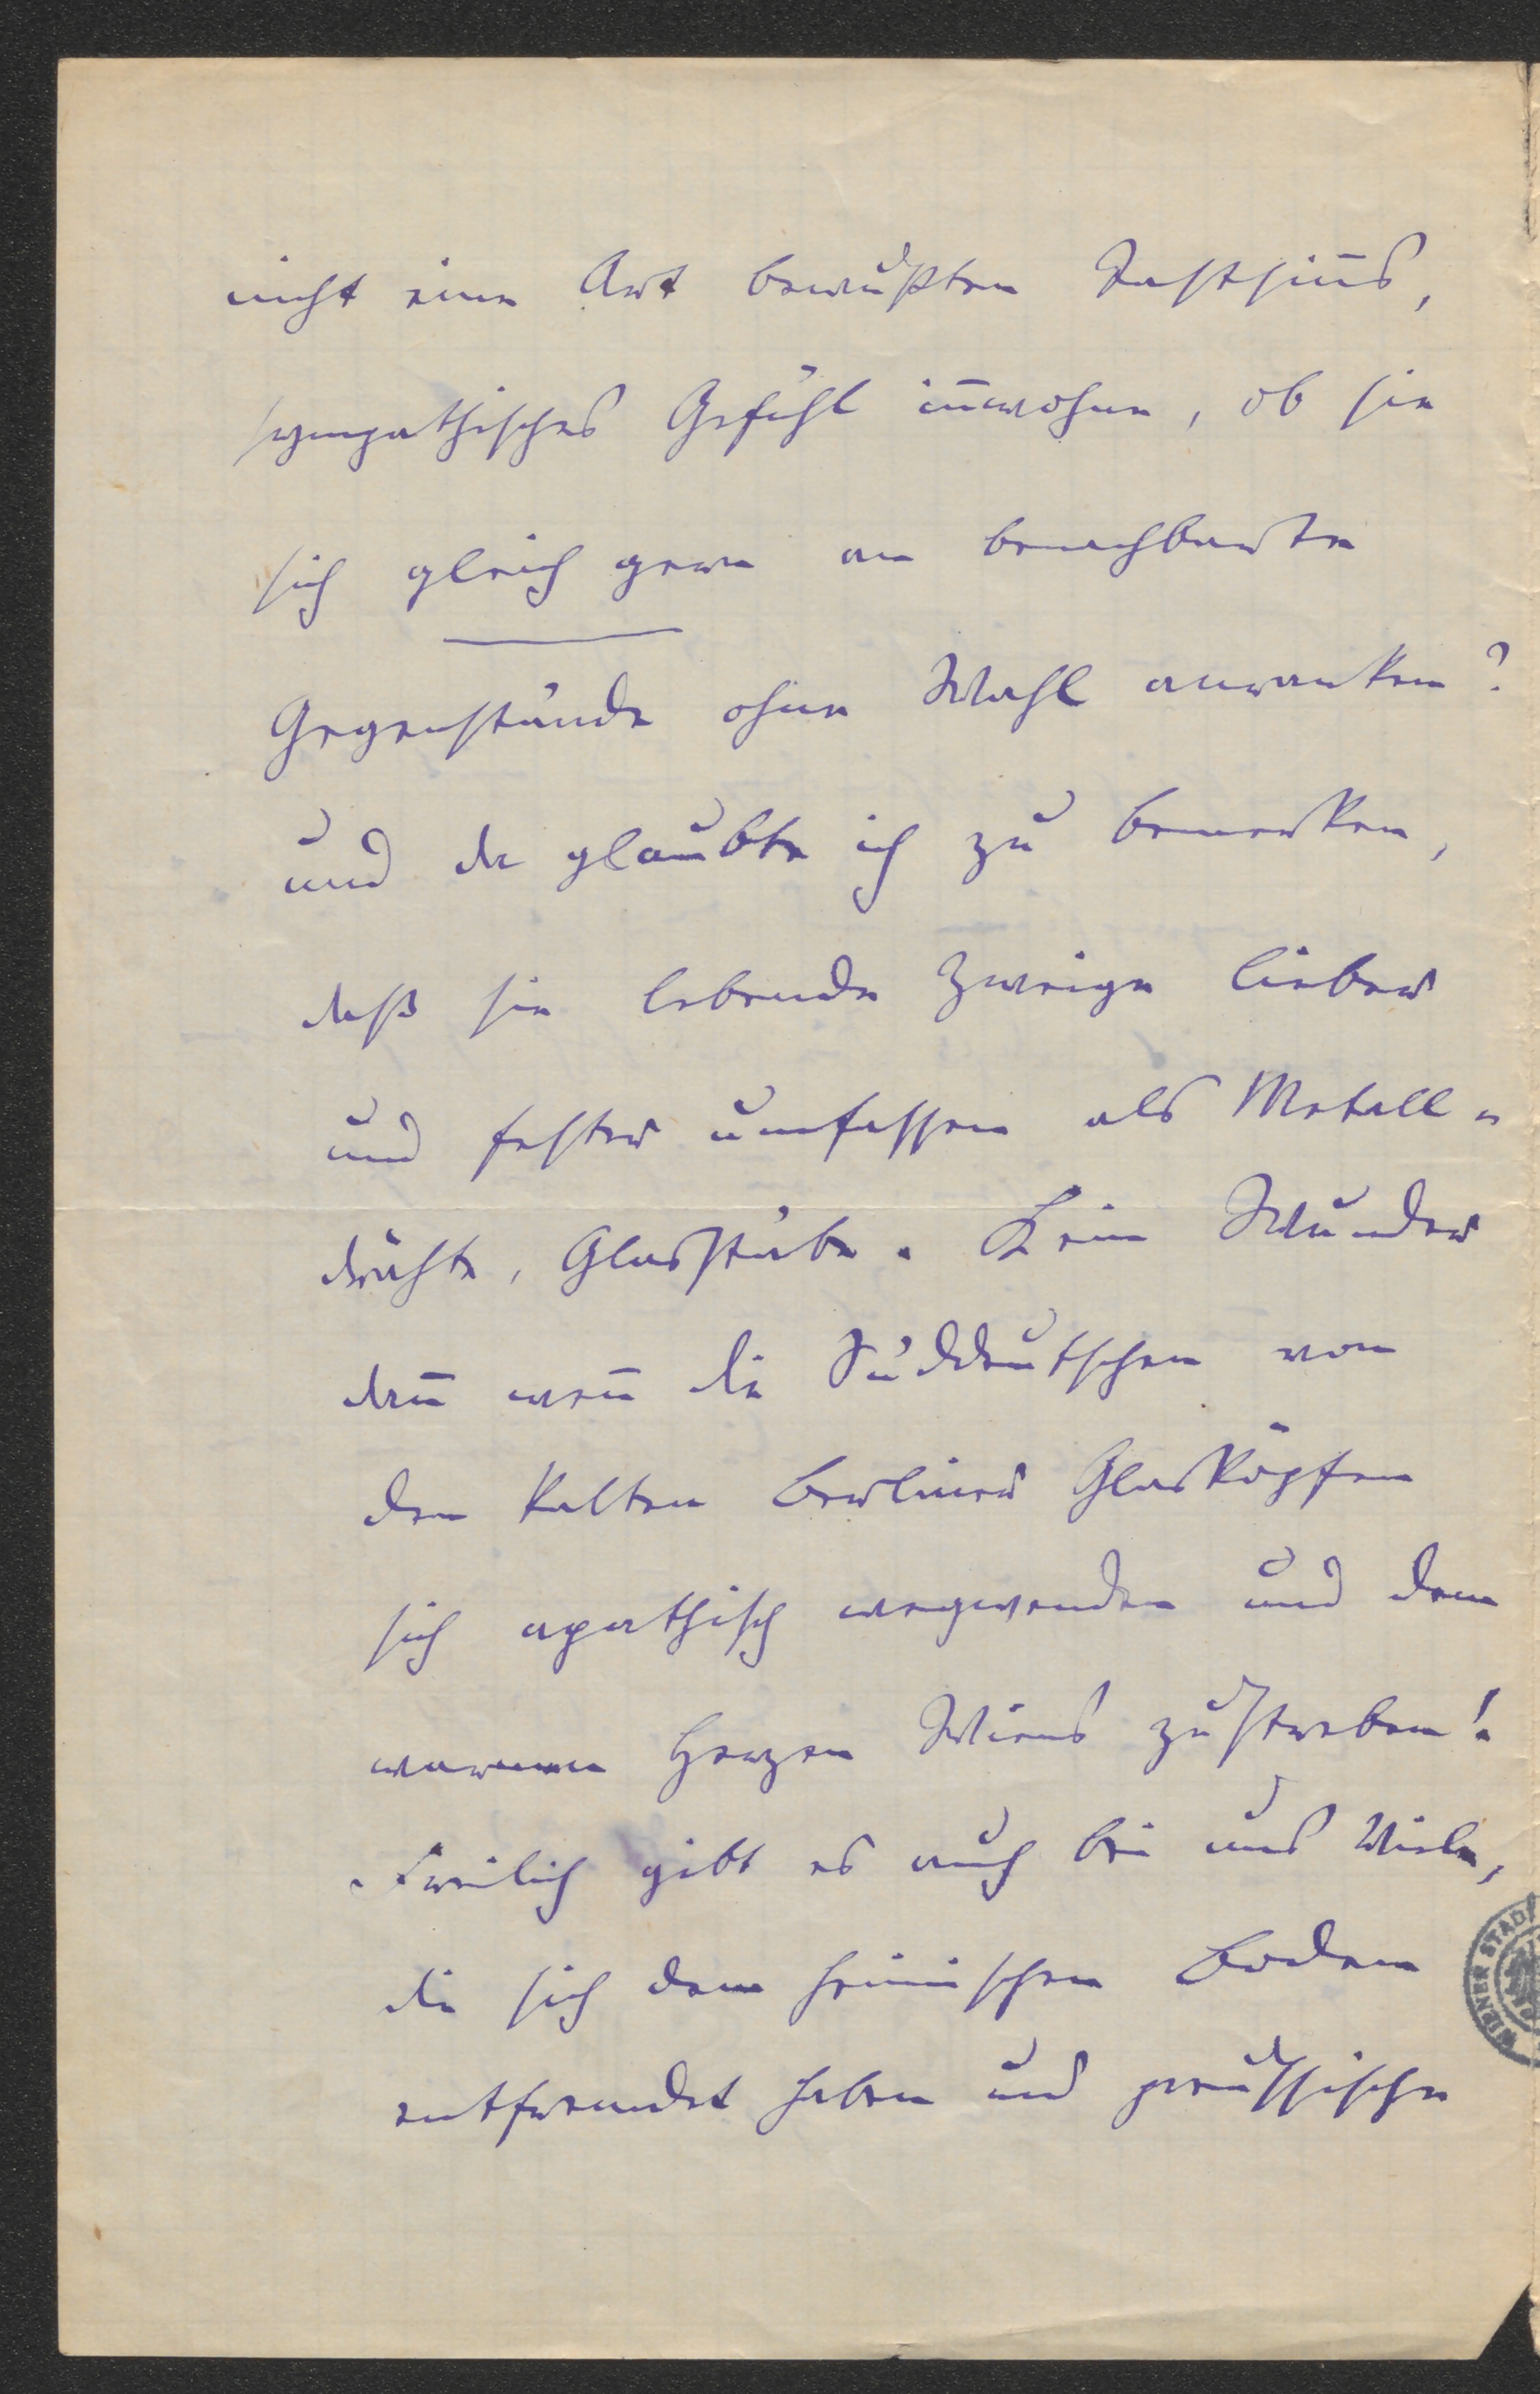 nicht eine Art bewußten Tastsin̄s,
sympathisches Gefühl in̄wohne, ob sie
sich gleich gern an benachbarte
Gegenstände ohne Wahl anranken?
und da glaubte ich zu bemerken,
daß sie lebende Zweige lieber
und fester umfassen als Metall-
drähte, Glasstäbe. Kein Wunder
den̄ wen̄ die Süddeutschen von
den kalten Berliner Glasköpfen
sich apathisch wegwenden und dem
warmen Herzen Wiens zustreben!
Freilich gibt es auch bei uns Viele,
die sich dem heimischen Boden
entfremdet haben und preußische
WIENER STAD